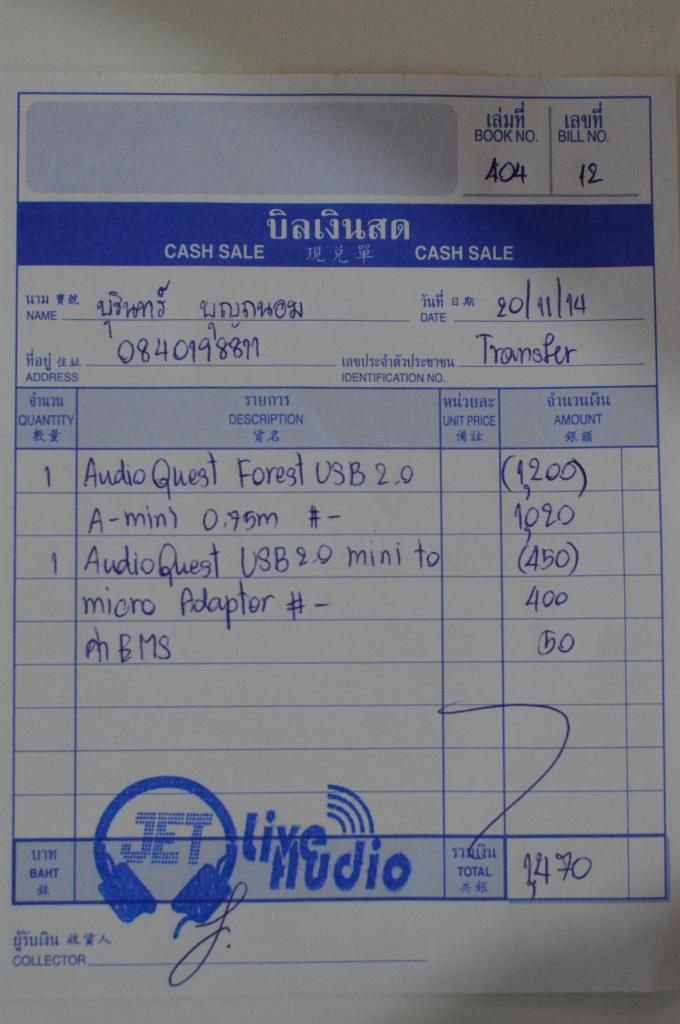 เล่มที่ เลขที่
BOOK NO. BILL NO.
404 12
บิลเงินสด
CASH SALE 現兌單 CASH SALE
นาม 寶號 บุรินทร์ บุญถนอม วันที่ 日期 20/11/14
NAME DATE
ที่อยู่ 住址 0840198811 เลขประจำตัวประชาชน Transfer
ADDRESS IDENTIFICATION NO.
จำนวน รายการ หน่วยละ จำนวนเงิน
QUANTITY DESCRIPTION UNIT PRICE AMOUNT
數量 貨名 備註 銀額
1 AudioQuest Forest USB 2.0 (1,200)
A-mini 0.75m #- 1,020
1 AudioQuest USB 2.0 mini to (450)
micro Adaptor #- 400
ค่า EMS 50
JET Live Audio
บาท รวมเงิน
BAHT TOTAL 1,470
銖 共銀
ผู้รับเงิน 收貨人
COLLECTOR